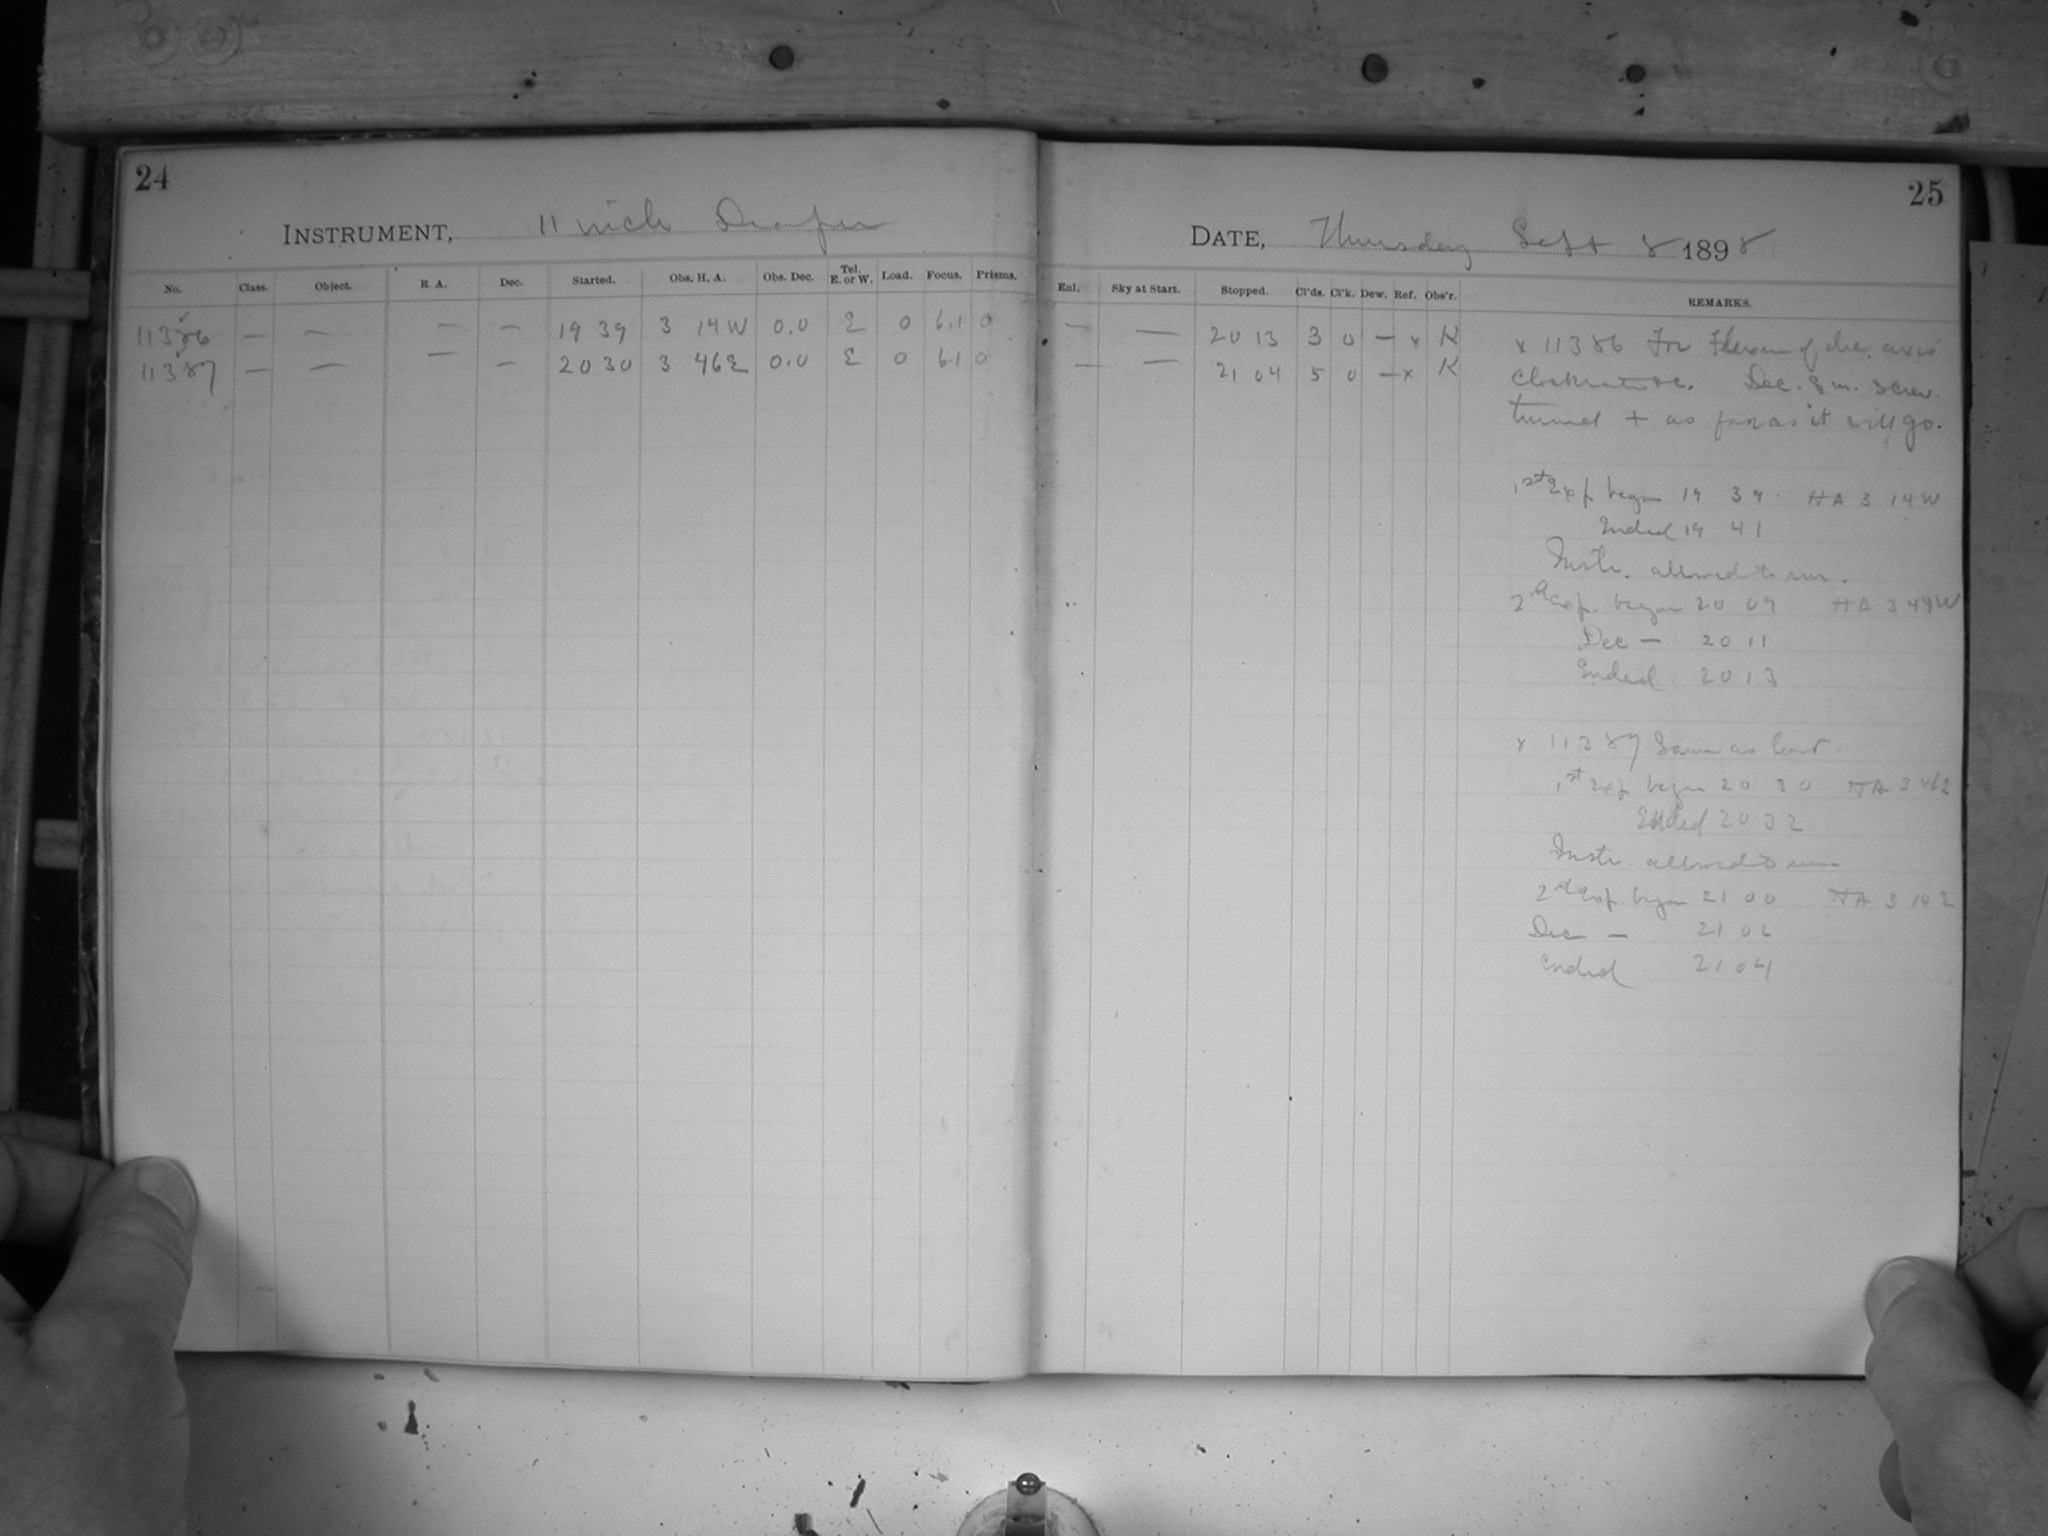 24
INSTRUMENT, 11 inch Draper
No. Class. Object. R. A. Dec. Started. Obs. H. A. Obs. Dec. Tel. E. or W. Load. Focus. Prisms.
11386 — — — — 19 39 3 14 W 0.0 E 0 6.1 0
11387 — — — — 20 30 3 46 E 0.0 E 0 6.1 0
25
DATE, Thursday Sept 8 1898
Enl. Sky at Start. Stopped. Cl'ds. Cl'k. Dew. Ref. Obs'r. REMARKS.
— — 20 13 3 0 — x K
— — 21 04 5 0 — x K
x 11386 For Flexure of dec. axis
Dec. s m. screw
turned + as far as it will go.
1st Exp began 19 39 HA 3 14 W
Ended 19 41
Instr. allowed to run.
2d exp. began 20 09 HA 3 44 W
Dec — 20 11
Ended 20 13
x 11387 Same as last.
1st Exp began 20 30 HA 3 46 E
Ended 20 32
Instr. allowed to run
2d Exp. began 21 00 HA 3 14 E
Dec — 21 02
Ended 21 04